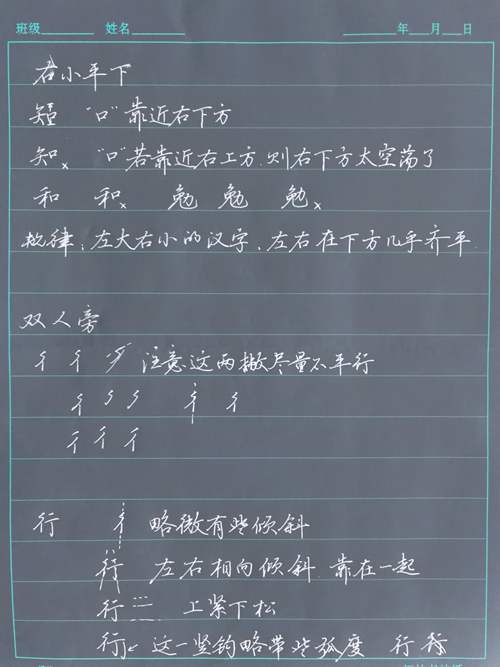 班级 姓名 年 月 日
右小平下
知 "口"靠近右下方
知× "口"若靠近右上方,则右下方太空荡了
和 和× 勉 勉 勉×
规律、左大右小的汉字、左右在下方几乎齐平.
双人旁
彳 彳 注意这两撇尽量不平行
彳 彳 彳
彳 彳 彳
行 彳 略微有些倾斜
行 左右相向倾斜 靠在一起
行 上紧下松
行 这一竖钩略带些弧度 行 行